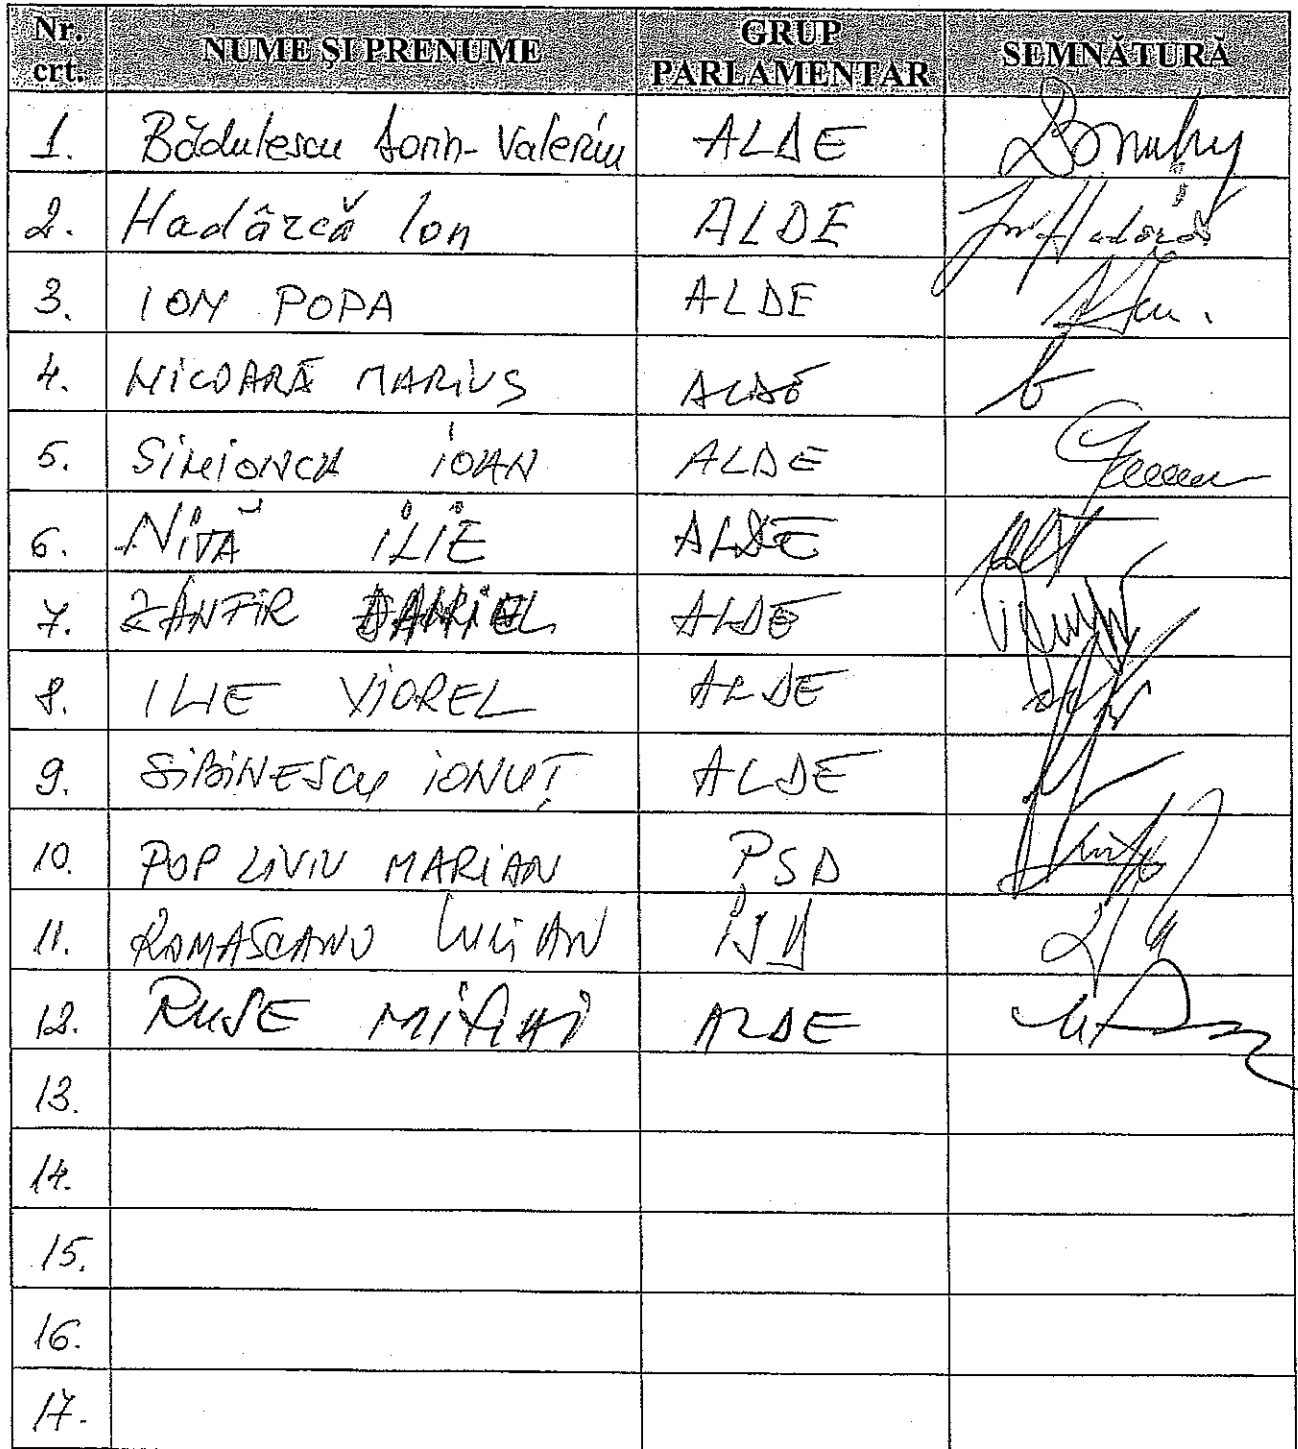 Nr. crt. NUME ȘI PRENUME GRUP PARLAMENTAR SEMNĂTURĂ
1. Bădulescu Dorin-Valeriu ALDE
2. Hadârcă Ion ALDE Ion Hadârcă
3. ION POPA ALDE
4. NICOARĂ MARIUS ALDE
5. SIMIONCA IOAN ALDE
6. NIȚĂ ILIE ALDE
7. ZANFIR DANIEL ALDE
8. ILIE VIOREL ALDE
9. SIBINESCU IONUȚ ALDE
10. POP LIVIU MARIAN PSD
11. ROMAȘCANU LUCIAN PSD
12. RUSE MIHAI ALDE
13.
14.
15.
16.
17.